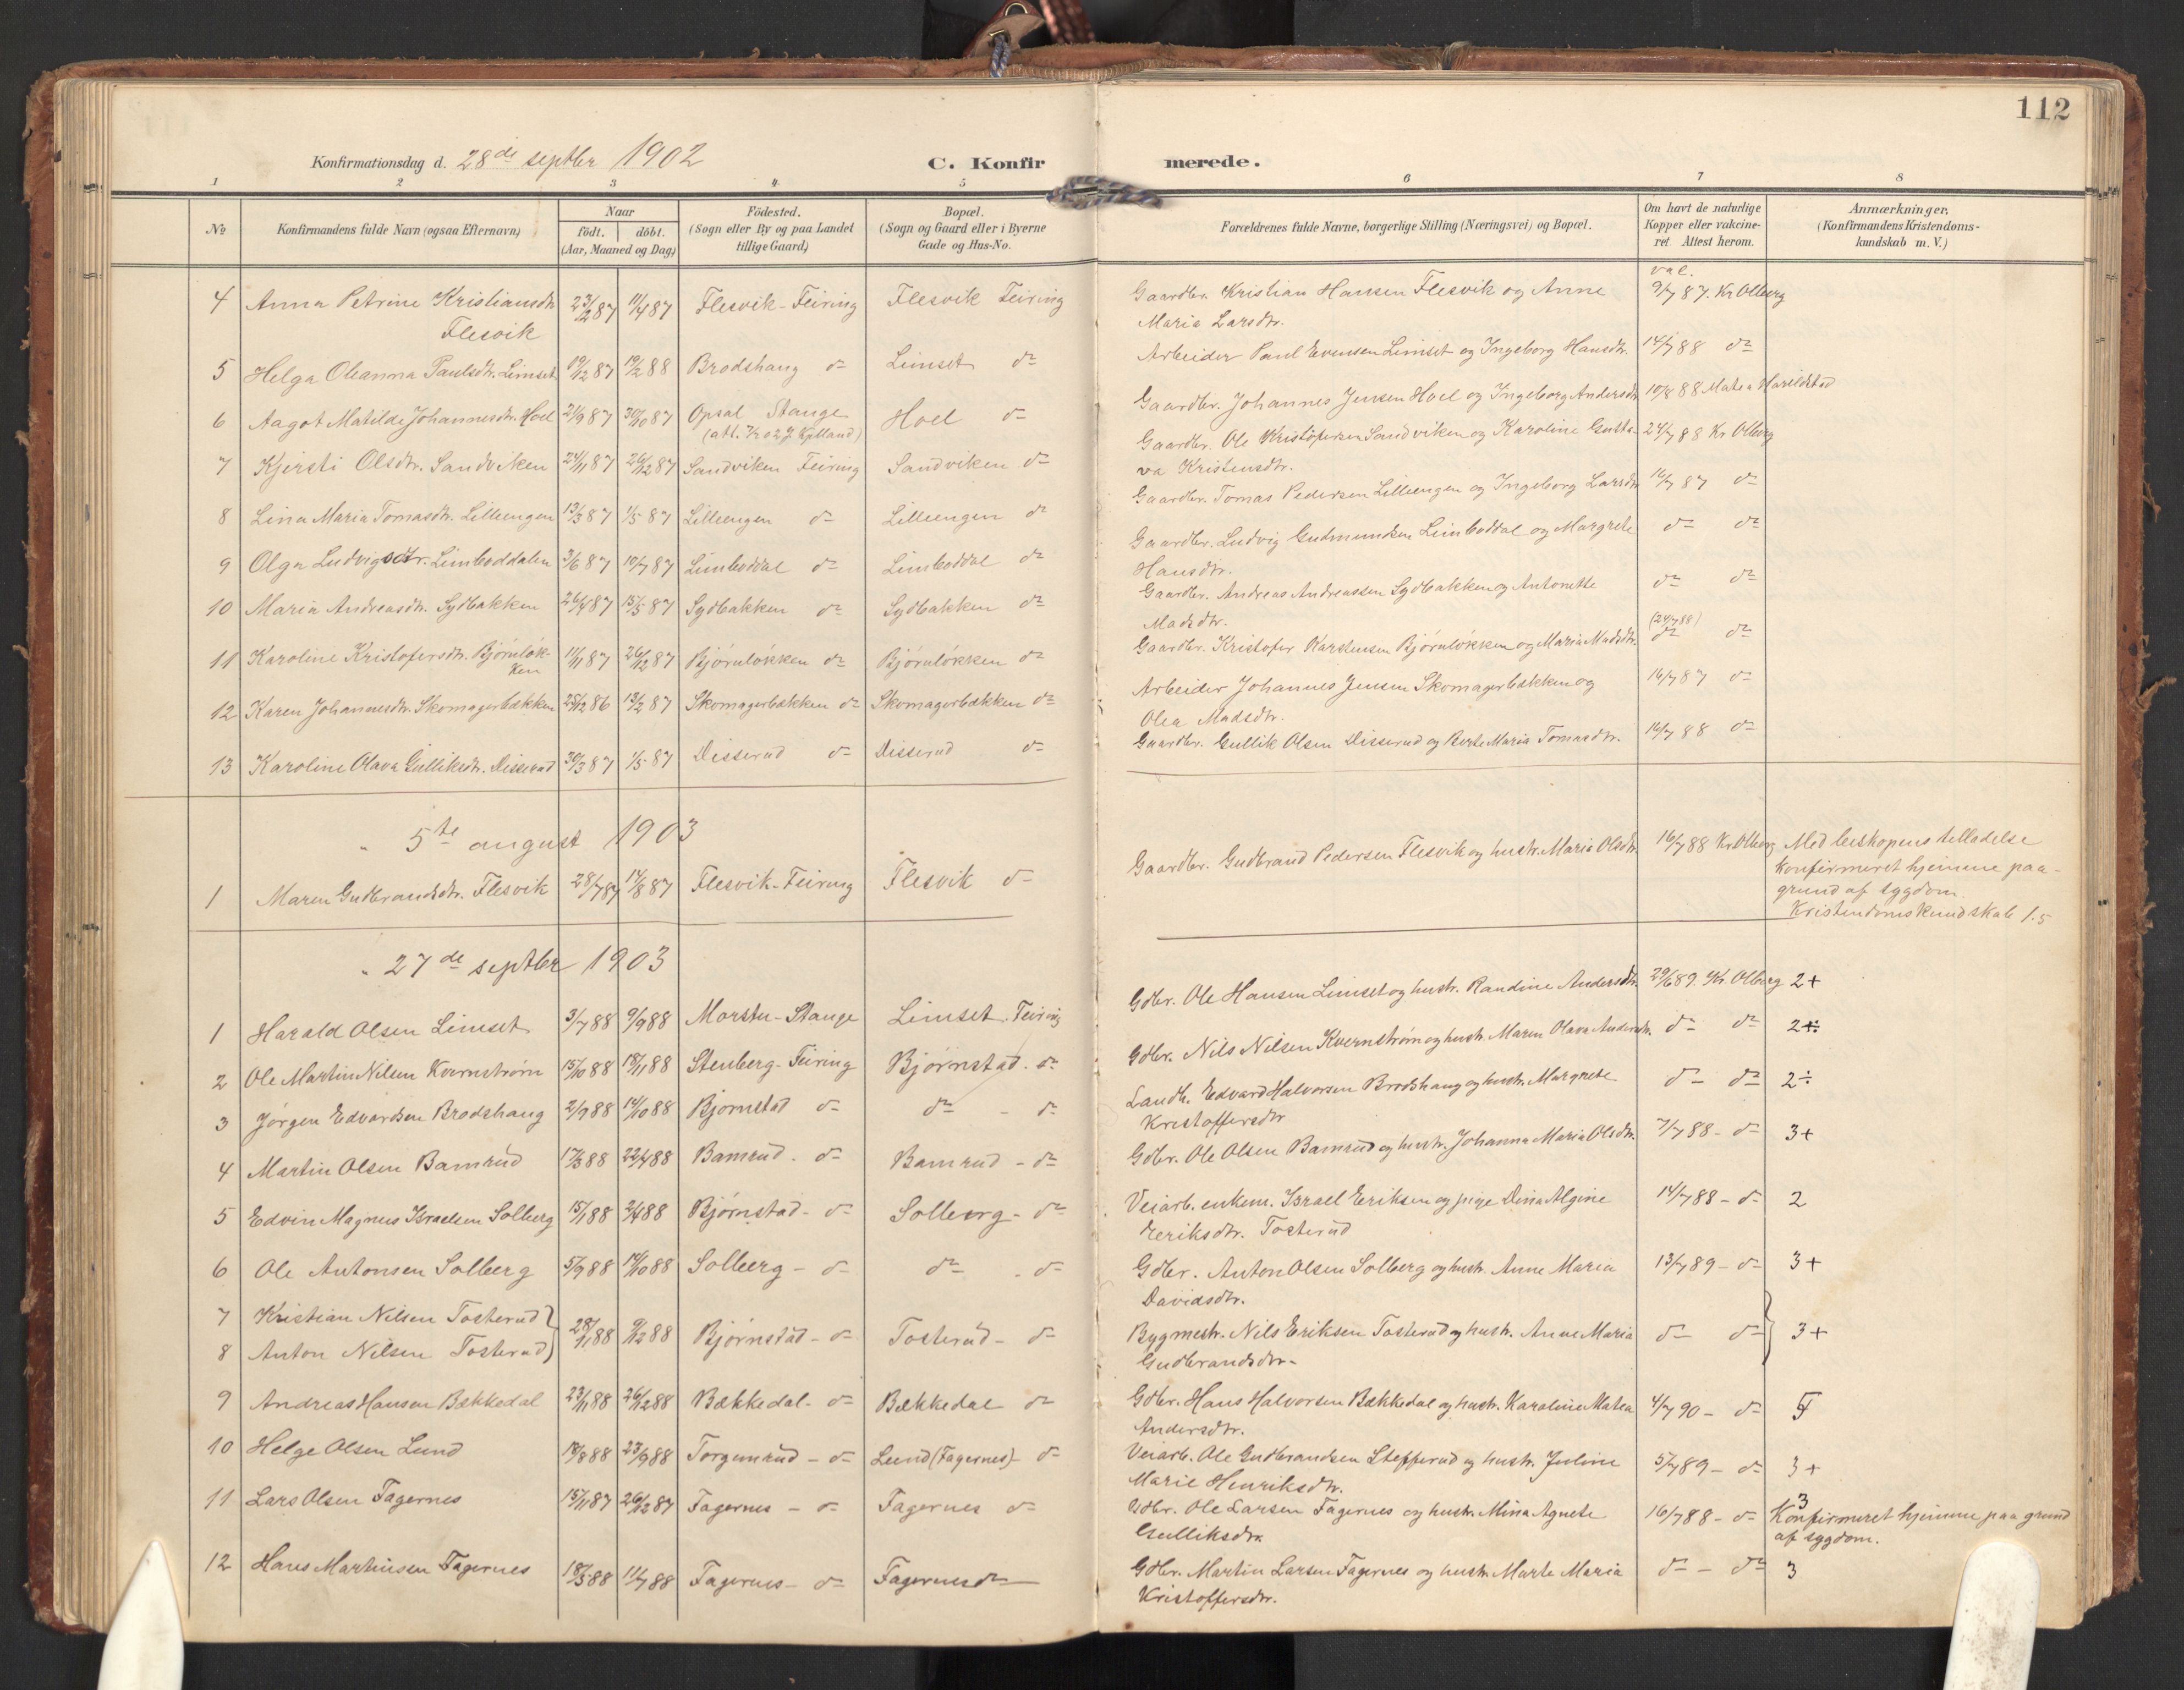 112
Konfirmationsdag d. 28de septbr 1902
C. Konfirmerede.
1 2 3 4 5 6 7 8
No
Konfirmandens fulde Navn (ogsaa Efternavn)
Naar
födt. döbt.
(Aar, Maaned og Dag)
Födested.
(Sogn eller By og paa Landet
tillige Gaard)
Bopæl.
(Sogn og Gaard eller i Byerne
Gade og Hus-No.
Forældrenes fulde Navne, borgerlige Stilling (Næringsvei) og Bopæl.
Om havt de naturlige
Kopper eller vakcine-
ret Attest herom.
Anmærkninger,
(Konfirmandens Kristendoms-
kundskab m. V.)
4 Anna Petrine Kristiansdtr. Flesvik 23/2 87 11/4 87 Flesvik - Feiring Flesvik Feiring Gaardbr. Kristian Hansen Flesvik og Anne Maria Larsdtr. vac. 9/7 87. Kr Olberg
5 Helga Oleanna Paulsdtr. Limset 19/12 87 19/2 88 Brodshaug do Limset do Arbeider Paul Evensen Limset og Ingeborg Hansdtr. 14/7 88 do
6 Aagot Matilde Johannesdtr. Hoel 21/9 87 30/10 87 Opsal Stange Hoel do Gaardbr. Johannes Jensen Hoel og Ingeborg Andersdtr. 10/8 88 Matea Harildstad
7 Kjersti Olsdtr. Sandviken 24/11 87 26/12 87 Sandviken Feiring Sandviken do Gaardbr. Ole Kristofersen Sandviken og Karoline Gustava Kristensdtr. 24/7 88 Kr Olberg
8 Lina Maria Tomasdtr. Lilleengen 13/3 87 1/5 87 Lilleengen do Lilleengen do Gaardbr. Tomas Pedersen Lilleengen og Ingeborg Larsdtr. 16/7 87 do
9 Olga Ludvigsdtr. Limboddalen 3/6 87 10/7 87 Limboddal do Limboddal do Gaardbr. Ludvig Gudmundsen Limboddal og Margrete Hansdtr. do do
10 Maria Andreasdtr. Sydbakken 26/4 87 15/5 87 Sydbakken do Sydbakken do Gaardbr. Andreas Andreassen Sydbakken og Antonette Madsdtr. do do
11 Karoline Kristofersdtr. Björnlökken 11/11 87 26/12 87 Björnlökken do Björnlökken do Gaardbr. Kristofer Karstensen Björnlökken og Maria Madsdtr. (24/7 88) do do
12 Karen Johannesdtr. Skomagerbakken 28/12 86 13/2 87 Skomagerbakken do Skomagerbakken do Arbeider Johannes Jensen Skomagerbakken og Olea Madsdtr. 16/7 87 do
13 Karoline Olava Gulliksdtr. Disserud 30/3 87 1/5 87 Disserud do Disserud do Gaardbr. Gullik Olsen Disserud og Berte Maria Tomasdtr. 16/7 88 do
" 5te august 1903
1 Maren Gudbrandsdtr. Flesvik 28/7 87 14/8 87 Flesvik - Feiring Flesvik do Gaardbr. Gudbrand Pedersen Flesvik og hustr. Maria Olsdtr. 16/7 88 Kr Olberg Med biskopens tilladelse
konfirmeret hjemme paa
grund af sygdom.
Kristendomskundskab 1.5
" 27de septbr 1903
1 Harald Olsen Limset 3/7 88 9/9 88 Morstu - Stange Limset. Feiring Gdbr. Ole Hansen Limset og hustr. Randine Andersdtr. 29/6 89. Kr. Olberg 2+
2 Ole Martin Nilsen Kvernstrøm 15/10 88 18/11 88 Stenberg - Feiring Björnstad. do Gdbr. Nils Nilsen Kvernstrøm og hustr. Maren Olava Andersdtr. do do 2÷
3 Jørgen Edvardsen Brodshaug 2/9 88 14/10 88 Bjornstad do do - do Landh. Edvard Halvorsen Brodshaug og hustr. Margrete Kristoffersdtr do do 2÷
4 Martin Olsen Bamrud 17/3 88 22/4 88 Bamrud. do Bamrud - do Gdbr. Ole Olsen Bamrud og hustr. Johanna Maria Olsdtr. 7/7 88 - do 3+
5 Edvin Magnus Israelsen Solberg 15/1 88 2/4 88 Björnstad - do Solberg - do Veiarb. enkem. Israel Eriksen og pige Dina Algine Eeriksdtr. Tosterud 14/7 88 - do 2
6 Ole Antonsen Solberg 5/9 88 14/10 88 Solberg - do do - do Gdbr. Anton Olsen Solberg og hustr. Anne Maria Davidsdtr. 13/7 89 - do 3+
7 Kristian Nilsen Tosterud
8 Anton Nilsen Tosterud 28/11 88 9/12 88 Björnstad - do Tosterud - do Bygmestr. Nils Eriksen Tosterud og hustr. Anne Maria Gudbrandsdtr. do do 3+
9 Andreas Hansen Bækkedal 23/11 88 26/12 88 Bækkedal - do Bækkedal do Gdbr. Hans Halvorsen Bækkedal og hustr. Karoline Matea Andersdtr. 4/7 90 - do
10 Helge Olsen Lund 18/8 88 23/9 88 Torgunrud - do Lund (Fagernes) - do Veiarb. Ole Gudbrandsen Stefferud og hustr. Juline Marie Henriksdtr. 5/7 89 - do 3+
11 Lars Olsen Fagernes 15/11 87 26/12 87 Fagernes - do Fagernes do Gdbr. Ole Larsen Fagernes og hustr. Mina Agnete Gulliksdtr. 16/7 88 - do 3
Konfirmeret hjemme paa grund
af sygdom.
12 Hans Martinsen Fagernes 18/5 88 11/7 88 Fagernes - do Fagernes do Gdbr. Martin Larsen Fagernes og hustr. Marte Maria Kristoffersdtr. do - do 3